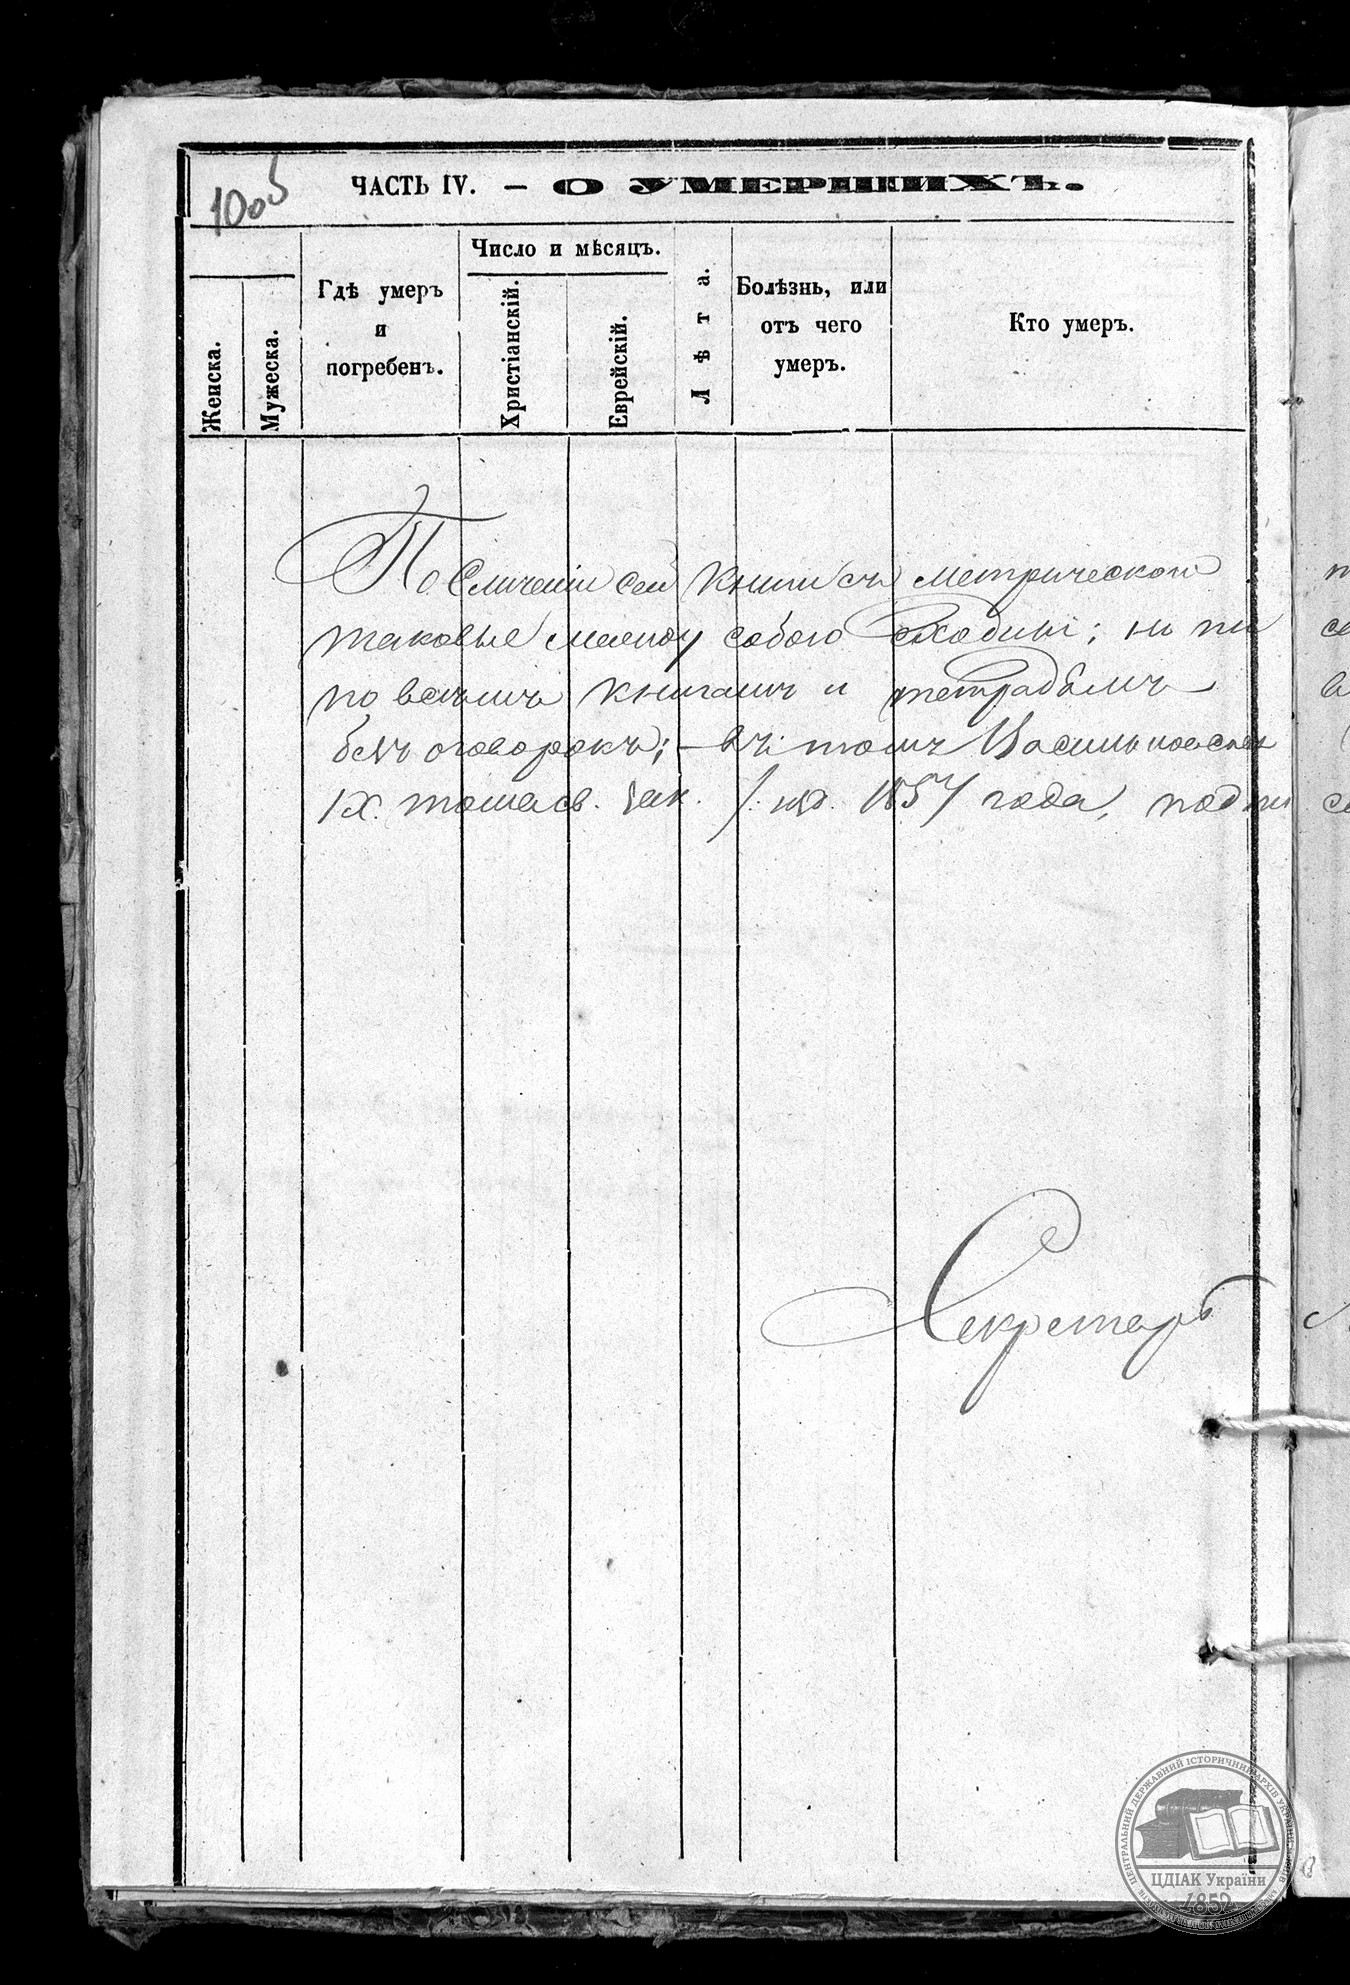 1005
ЧАСТЬ IV. — О УМЕРШИХЪ.
Женска.
Мужеска.
Гдѣ умеръ
и
погребенъ.
Число и мѣсяцъ.
Христіанскій.
Еврейскій.
Лѣта.
Болѣзнь, или
отъ чего
умеръ.
Кто умеръ.
По сличеніи сей книги съ метрической
таковые между собою сходны; но
по всѣмъ книгамъ и тетрадямъ
безъ оговорокъ; — въ томъ
IX. тома св. зак. изд. 1857 года,
Секретарь
ЦЕНТРАЛЬНИЙ ДЕРЖАВНИЙ ІСТОРИЧНИЙ АРХІВ УКРАЇНИ
ЦДІАК України
1852